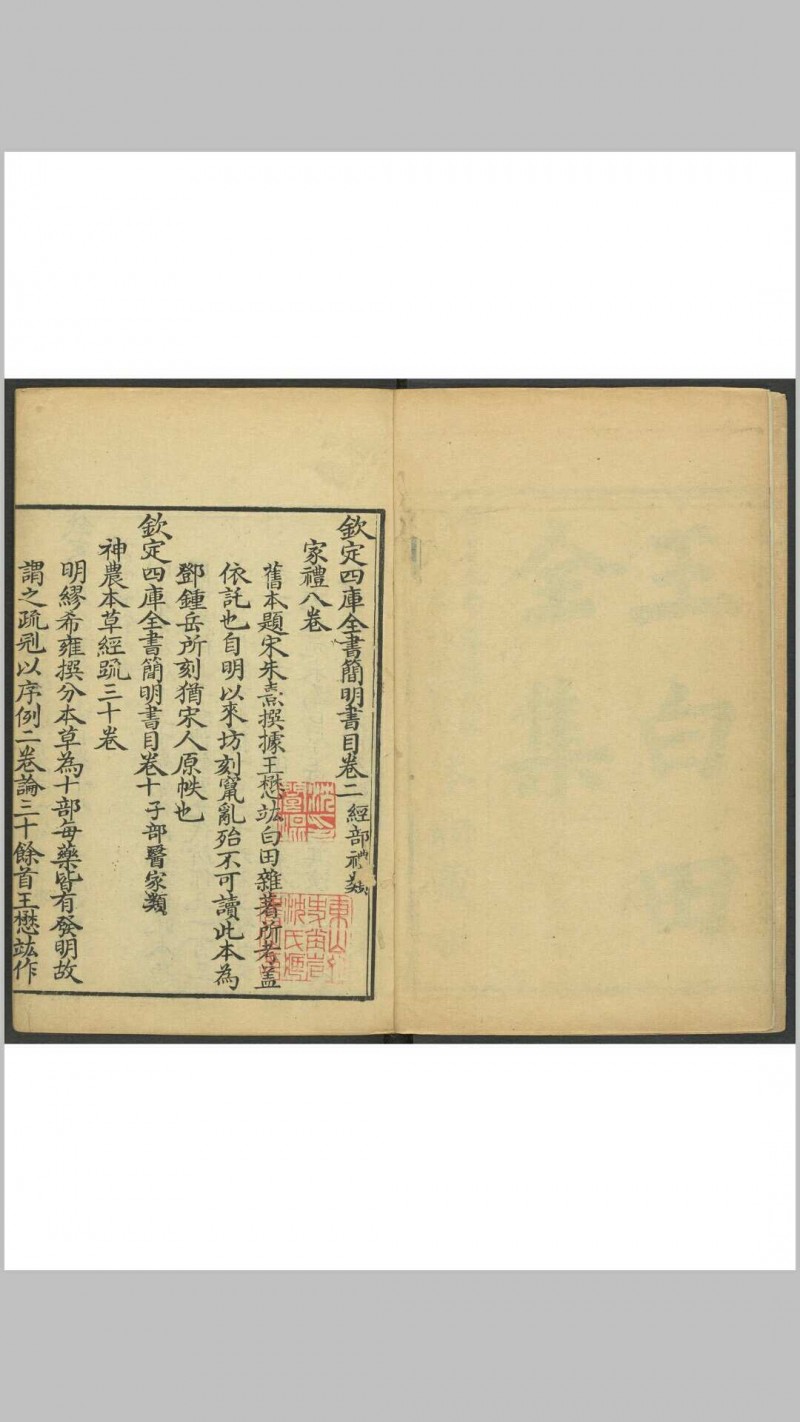 欽定四庫全書簡明書目卷二 經部禮類
家禮八卷
舊本題宋朱熹撰據王懋竑白田雜著所考盖
依託也自明以來坊刻竄亂殆不可讀此本為
鄧鍾岳所刻猶宋人原帙也
欽定四庫全書簡明書目卷十 子部醫家類
神農本草經疏三十卷
明繆希雍撰分本草為十部每藥皆有發明故
謂之疏冠以序例二卷論三十餘首王懋竑作